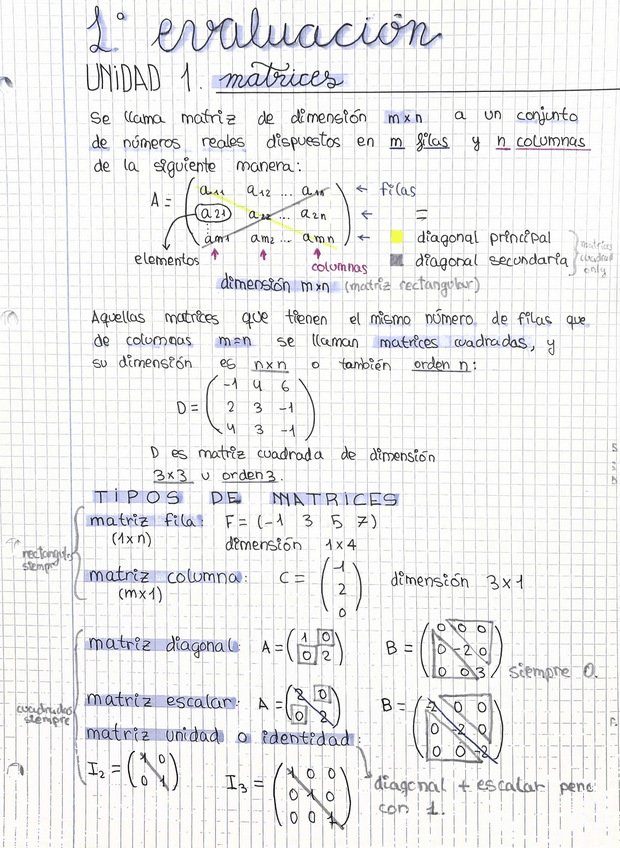 1ª evaluación
UNIDAD 1. matrices
Se llama matriz de dimensión m×n a un conjunto
de números reales dispuestos en m filas y n columnas
de la siguiente manera:
A = ( a11 a12 ... a1n ) ← filas
( a21 a22 ... a2n ) ← =
( am1 am2 ... amn ) ← diagonal principal
elementos ↑ ↑ ↑ columnas diagonal secundaria
matrices
cuadrad
only
dimensión m×n (matriz rectangular)
Aquellas matrices que tienen el mismo número de filas que
de columnas m=n se llaman matrices cuadradas, y
su dimensión es n×n o también orden n:
D = ( -1 4 6 )
( 2 3 -1 )
( 4 3 -1 )
D es matriz cuadrada de dimensión
3×3 u orden 3.
TIPOS DE MATRICES
matriz fila: F = (-1 3 5 7)
(1×n) dimensión 1×4
rectangula
siempre
matriz columna: C = ( -1 ) dimensión 3×1
(m×1) ( 2 )
( 0 )
matriz diagonal: A = ( 1 0 ) B = ( 0 0 0 )
( 0 2 ) ( 0 -2 0 )
( 0 0 3 ) siempre 0.
cuadradas
siempre
matriz escalar: A = ( 2 0 ) B = ( -2 0 0 )
( 0 2 ) ( 0 -2 0 )
( 0 0 -2 )
matriz unidad o identidad
I2 = ( 1 0 ) I3 = ( 1 0 0 )
( 0 1 ) ( 0 1 0 )
( 0 0 1 )
diagonal + escalar pero
con 1.